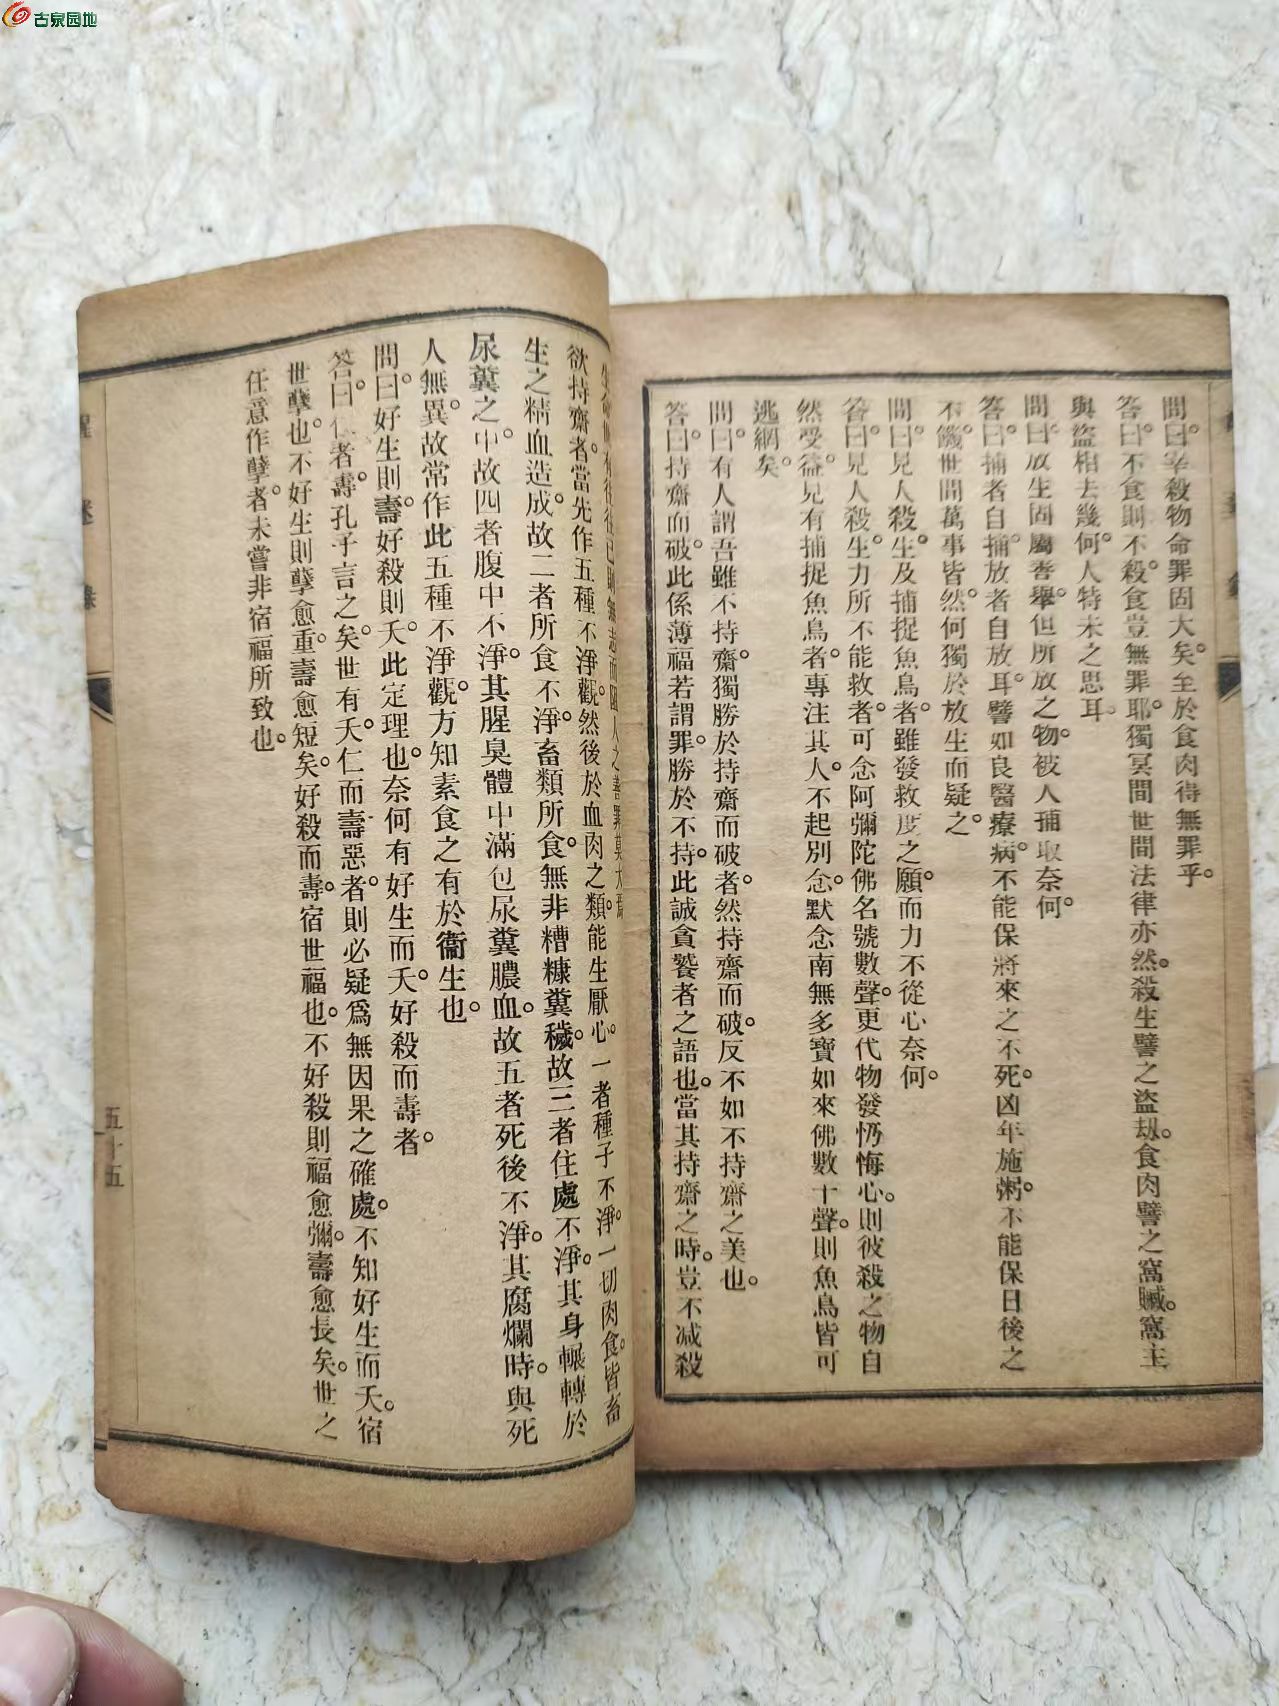 古泉园地
問曰。宰殺物命罪固大矣。至於食肉得無罪乎。
答曰。不食則不殺。食豈無罪耶。獨冥間世間法律亦然。殺生譬之盜劫。食肉譬之窩贓。窩主
與盜相去幾何。人特未之思耳。
問曰。放生固屬善舉。但所放之物。被人捕取奈何。
答曰。捕者自捕。放者自放耳。譬如良醫療病。不能保將來之不死。凶年施粥。不能保日後之
不饑。世間萬事皆然。何獨於放生而疑之。
問曰。見人殺生。及捕捉魚鳥者。雖發救度之願。而力不從心奈何。
答曰。見人殺生。力所不能救者。可念阿彌陀佛名號數聲。更代物發懺悔心。則彼殺之物自
然受益。見有捕捉魚鳥者。專注其人。不起別念。默念南無多寶如來佛數十聲。則魚鳥皆可
逃網矣。
問曰。有人謂吾雖不持齋。獨勝於持齋而破者。然持齋而破。反不如不持齋之美也。
答曰。持齋而破。此係薄福。若謂罪勝於不持。此誠貪饕者之語也。當其持齋之時。豈不减殺
人之善罪莫大
欲持齋者。當先作五種不淨觀。然後於血肉之類。能生厭心。一者種子不淨。一切肉食。皆畜
生之精血造成。故二者所食不淨。畜類所食。無非糟糠糞穢。故三者住處不淨。其身輾轉於
尿糞之中。故四者腹中不淨。其腥臭體中滿包尿糞膿血。故五者死後不淨。其腐爛時。與死
人無異。故常作此五種不淨觀。方知素食之有於衞生也。
問曰。好生則壽。好殺則夭。此定理也。奈何有好生而夭。好殺而壽者。
答曰。仁者壽。孔子言之矣。世有夭仁而壽惡者。則必疑爲無因果之確處。不知好生而夭。宿
世孽也。不好生則孽愈重。壽愈短矣。好殺而壽。宿世福也。不好殺則福愈彌。壽愈長矣。世之
任意作孽者。未嘗非宿福所致也。
醒迷錄
五十五